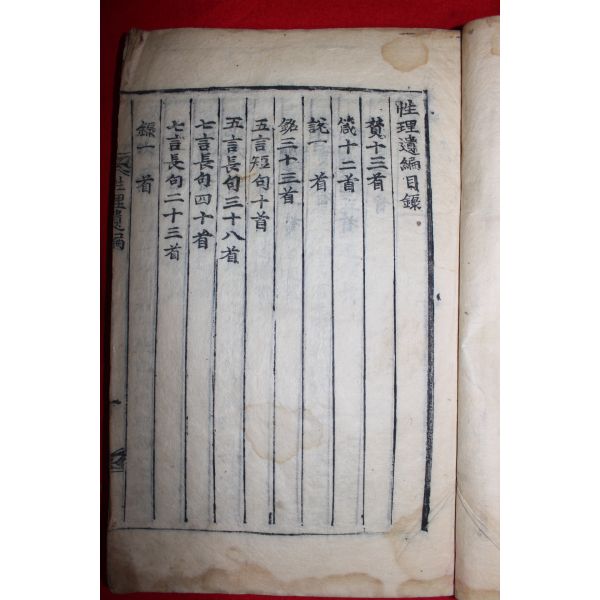 性理遺編目錄
贊十三首
箴十二首
說一首
銘三十三首
五言短句十首
五言長句三十八首
七言長句四十首
七言長句二十三首
錄一首
性理遺編
一